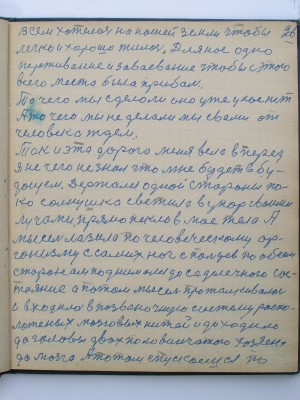 26
всем хотелось на ношей земли чтобы
легко и хорошо жилось. Для нас одно
переживание и заваевание чтобы с этого
всего место была прибыль.
То чего мы сделоли оно уже укоснит
А то чего мы не делоли мы своими от
человека ждем.
Так и эта дорога меня вела вперед
я не чего не знал что мне будет в бу-
дощем. Держался одной стороны по-
ка солнушко светило в упор своими
лучами, прямо пекло в мае тела А
мысел лазила по человеческому ор-
гонизму с самих ног с пальцев по обеем
сторонам поднимолася до солнечного спе-
тияние а потом мысел проталкивалася
и входила в позваночную систему роспо-
ложеных мозговых нитей и доходило
до головы двох половинчатого хозяено
до мозга А потом спускоемся по